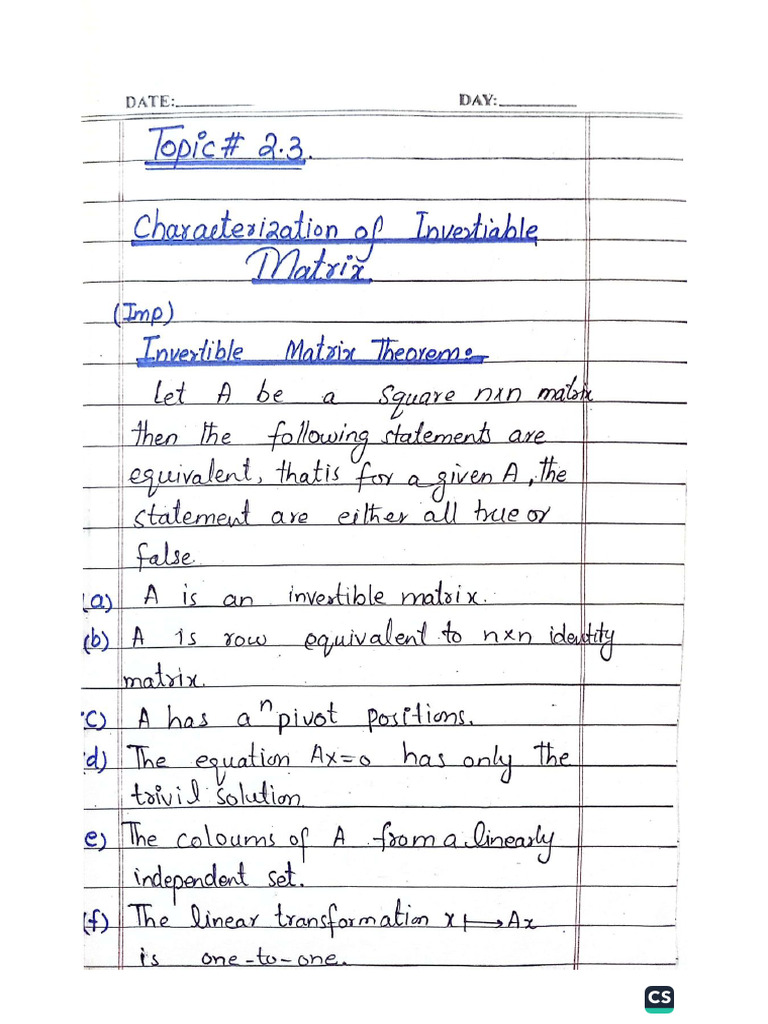 DATE:__________ DAY:__________
Topic# 2.3.
Characterization of Invertiable
Matrix
(Imp)
Invertible Matrix Theorem:
Let A be a square n×n matrix
then the following statements are
equivalent, thatis for a given A, the
statement are either all true or
false.
(a) A is an invertible matrix.
(b) A is row equivalent to n×n identity
matrix.
(c) A has a n pivot positions.
(d) The equation Ax=0 has only the
trivil solution
(e) The coloums of A from a linearly
independent set.
(f) The linear transformation x ↦ Ax
is one-to-one.
CS